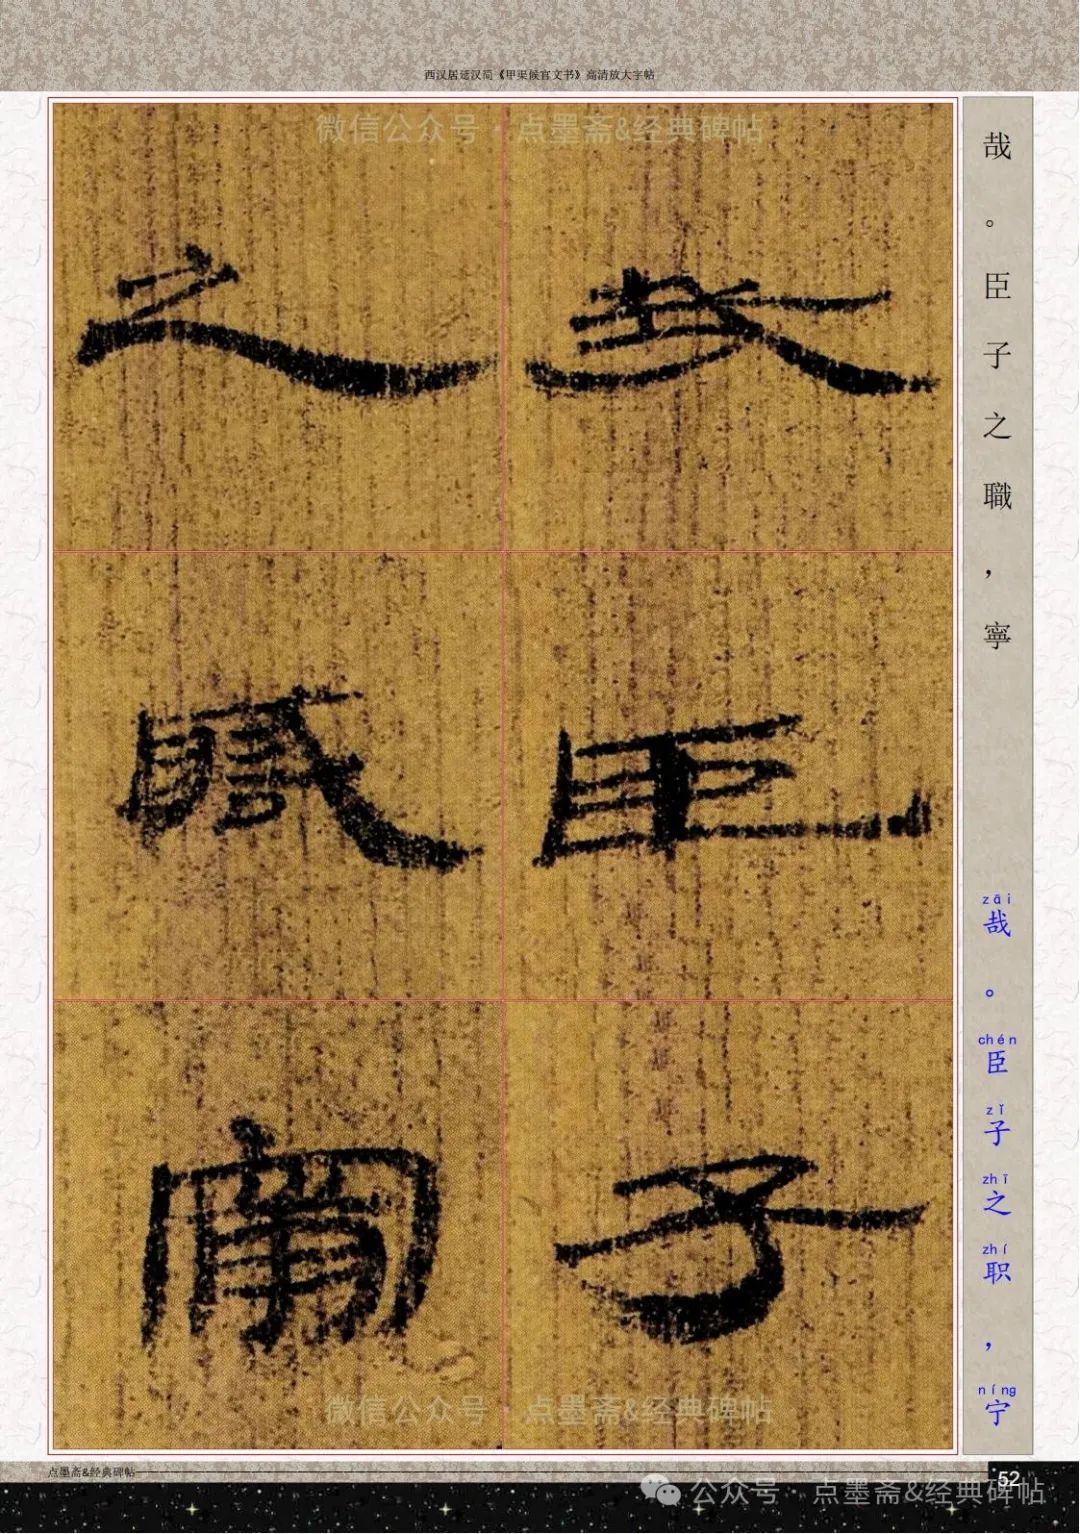 西汉居延汉简《甲渠候官文书》高清放大字帖
微信公众号·点墨斋&经典碑帖
哉臣子
之職寧
哉。臣子之職，寧
zāi chén zǐ zhī zhí níng
哉。臣子之职，宁
微信公众号·点墨斋&经典碑帖
点墨斋&经典碑帖
52
公众号·点墨斋&经典碑帖